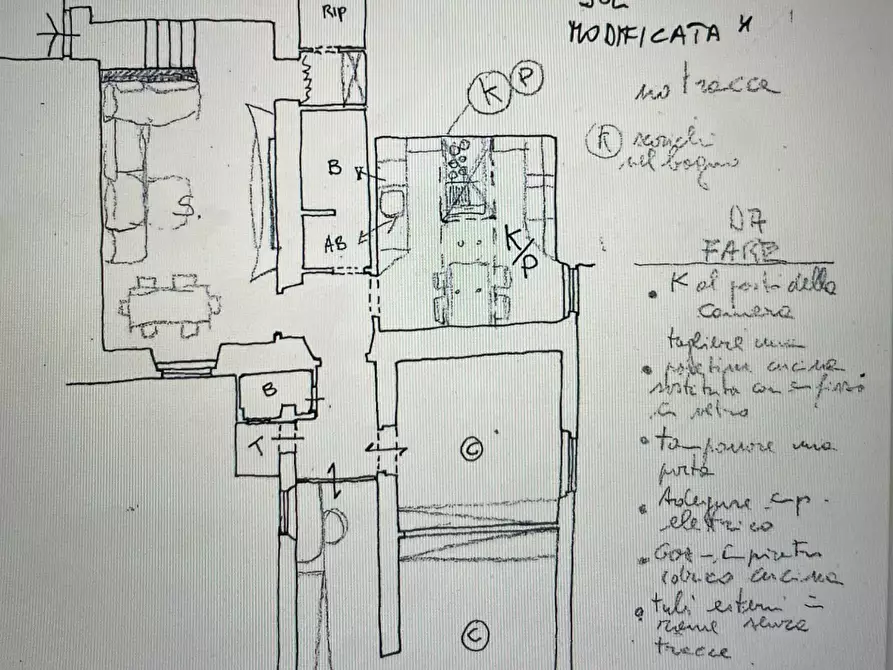 SOL
MODIFICATA *
RIP
no tracce
K P
K scarichi
nel bagno
B
S.
AB
K/P
DA
FARE
• K al posto della
camera
togliere una
• cucina
sostituta con infisso
in vetro
B
T
• tamponare una
porta
C
• Adeguare imp.
elettrico
• Gas
cucina
• tubi esterni in
rame senza
tracce
C